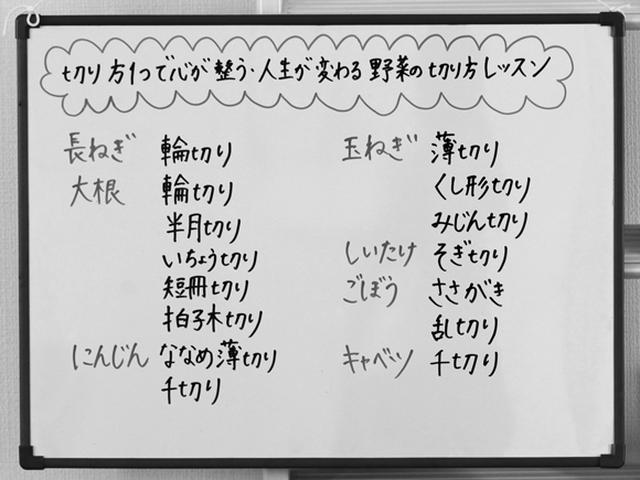 切り方1つで心が整う・人生が変わる野菜の切り方レッスン
長ねぎ 輪切り
大根 輪切り
半月切り
いちょう切り
短冊切り
拍子木切り
にんじん ななめ薄切り
千切り
玉ねぎ 薄切り
くし形切り
みじん切り
しいたけ そぎ切り
ごぼう ささがき
乱切り
キャベツ 千切り